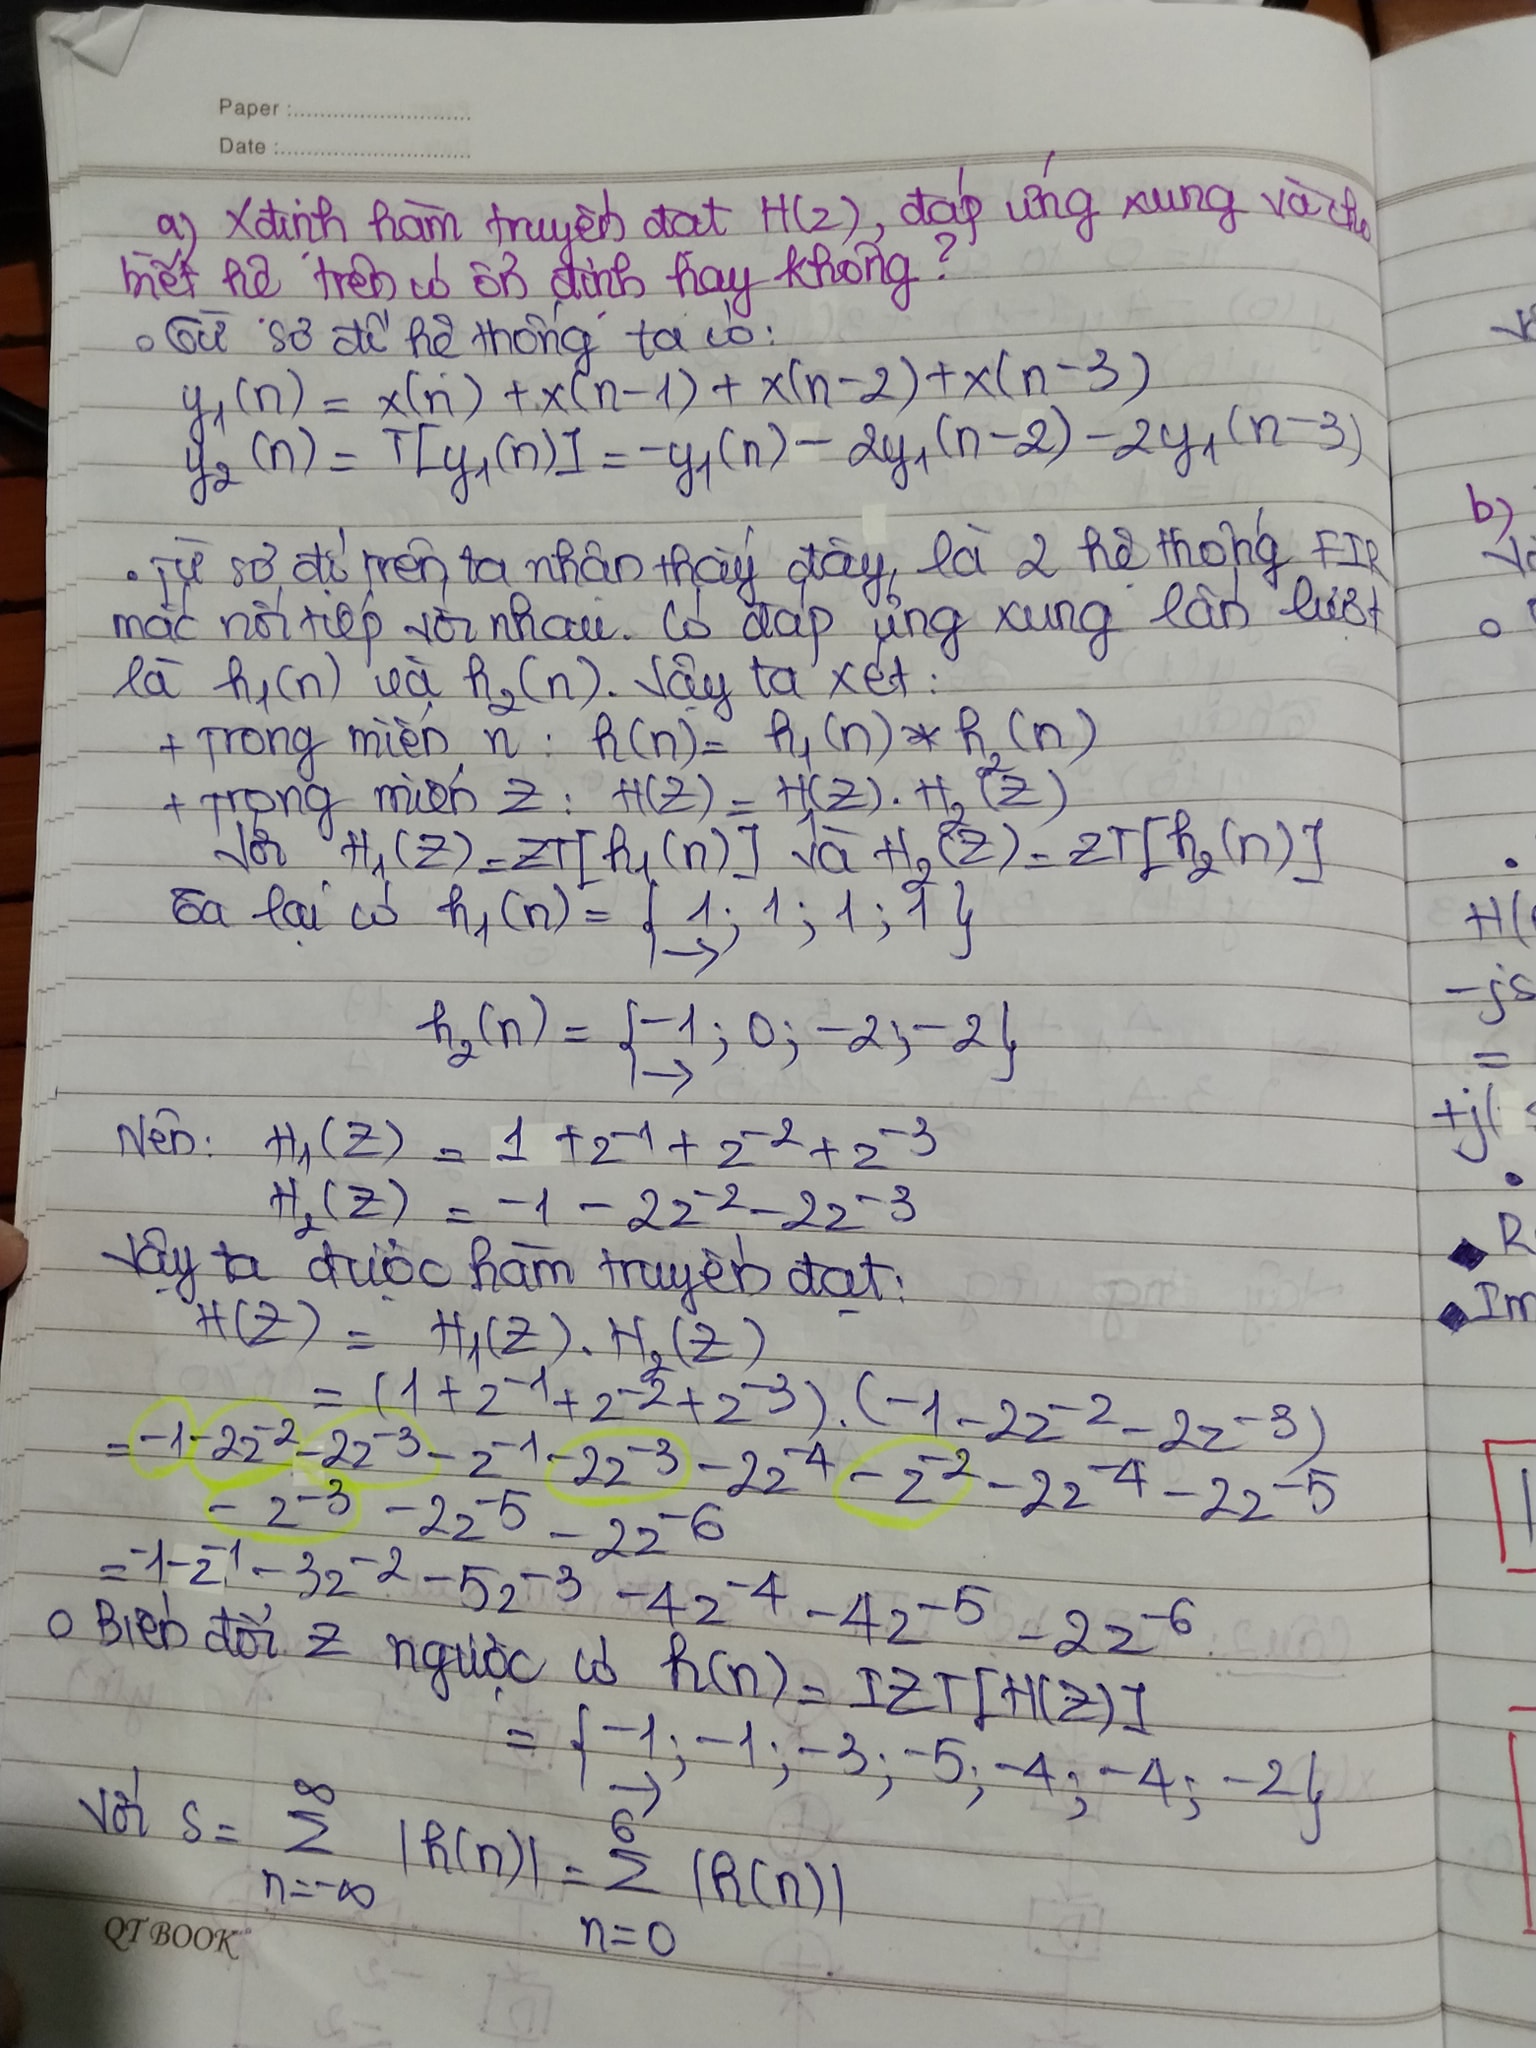 Paper :
Date :
a) Xđịnh hàm truyền đạt H(z), đáp ứng xung và cho
biết hệ trên có ổn định hay không?
o Từ sơ đồ hệ thống ta có:
y₁(n) = x(n) + x(n-1) + x(n-2) + x(n-3)
y₂(n) = T[y₁(n)] = -y₁(n) - 2y₁(n-2) - 2y₁(n-3)
b)
• Từ sơ đồ trên ta nhận thấy đây là 2 hệ thống FIR
mắc nối tiếp với nhau. Có đáp ứng xung lần lượt
là h₁(n) và h₂(n). Vậy ta xét:
+ Trong miền n: h(n) = h₁(n) * h₂(n)
+ Trong miền Z: H(Z) = H₁(Z) . H₂(Z)
Với H₁(Z) = ZT[h₁(n)] và H₂(Z) = ZT[h₂(n)]
Ta lại có h₁(n) = { 1; 1; 1; 1 }
→
h₂(n) = { -1; 0; -2; -2 }
→
Nên: H₁(Z) = 1 + z⁻¹ + z⁻² + z⁻³
H₂(Z) = -1 - 2z⁻² - 2z⁻³
Vậy ta được hàm truyền đạt:
H(Z) = H₁(Z) . H₂(Z)
= (1 + z⁻¹ + z⁻² + z⁻³) . (-1 - 2z⁻² - 2z⁻³)
= -1 - 2z⁻² - 2z⁻³ - z⁻¹ - 2z⁻³ - 2z⁻⁴ - z⁻² - 2z⁻⁴ - 2z⁻⁵
- z⁻³ - 2z⁻⁵ - 2z⁻⁶
= -1 - z⁻¹ - 3z⁻² - 5z⁻³ - 4z⁻⁴ - 4z⁻⁵ - 2z⁻⁶
o Biến đổi Z ngược có h(n) = IZT[H(Z)]
= { -1; -1; -3; -5; -4; -4; -2 }
→
Với S = ∞ Σ n=-∞ |h(n)| = 6 Σ n=0 |h(n)|
QT BOOK
H(
-js
=
+j(